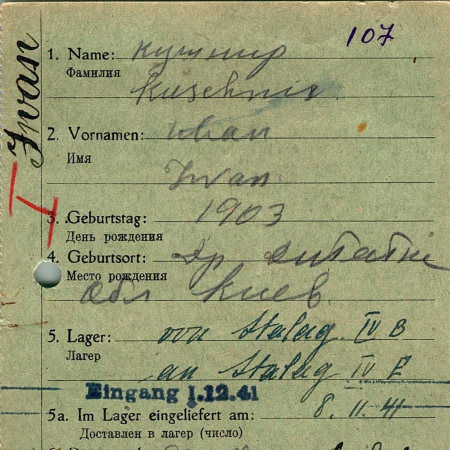 107
Iwan
1. Name: кушнир
Фамилия
Kuschnir.
2. Vornamen: Иван
Имя
Iwan.
3. Geburtstag: 1903
День рождения
4. Geburtsort: др
Место рождения
обл Киев.
5. Lager: von Stalag. IV B
Лагер
an Stalag IV E
Eingang 1.12.41
5a. Im Lager eingeliefert am: 8. 11. 41
Доставлен в лагер (число)